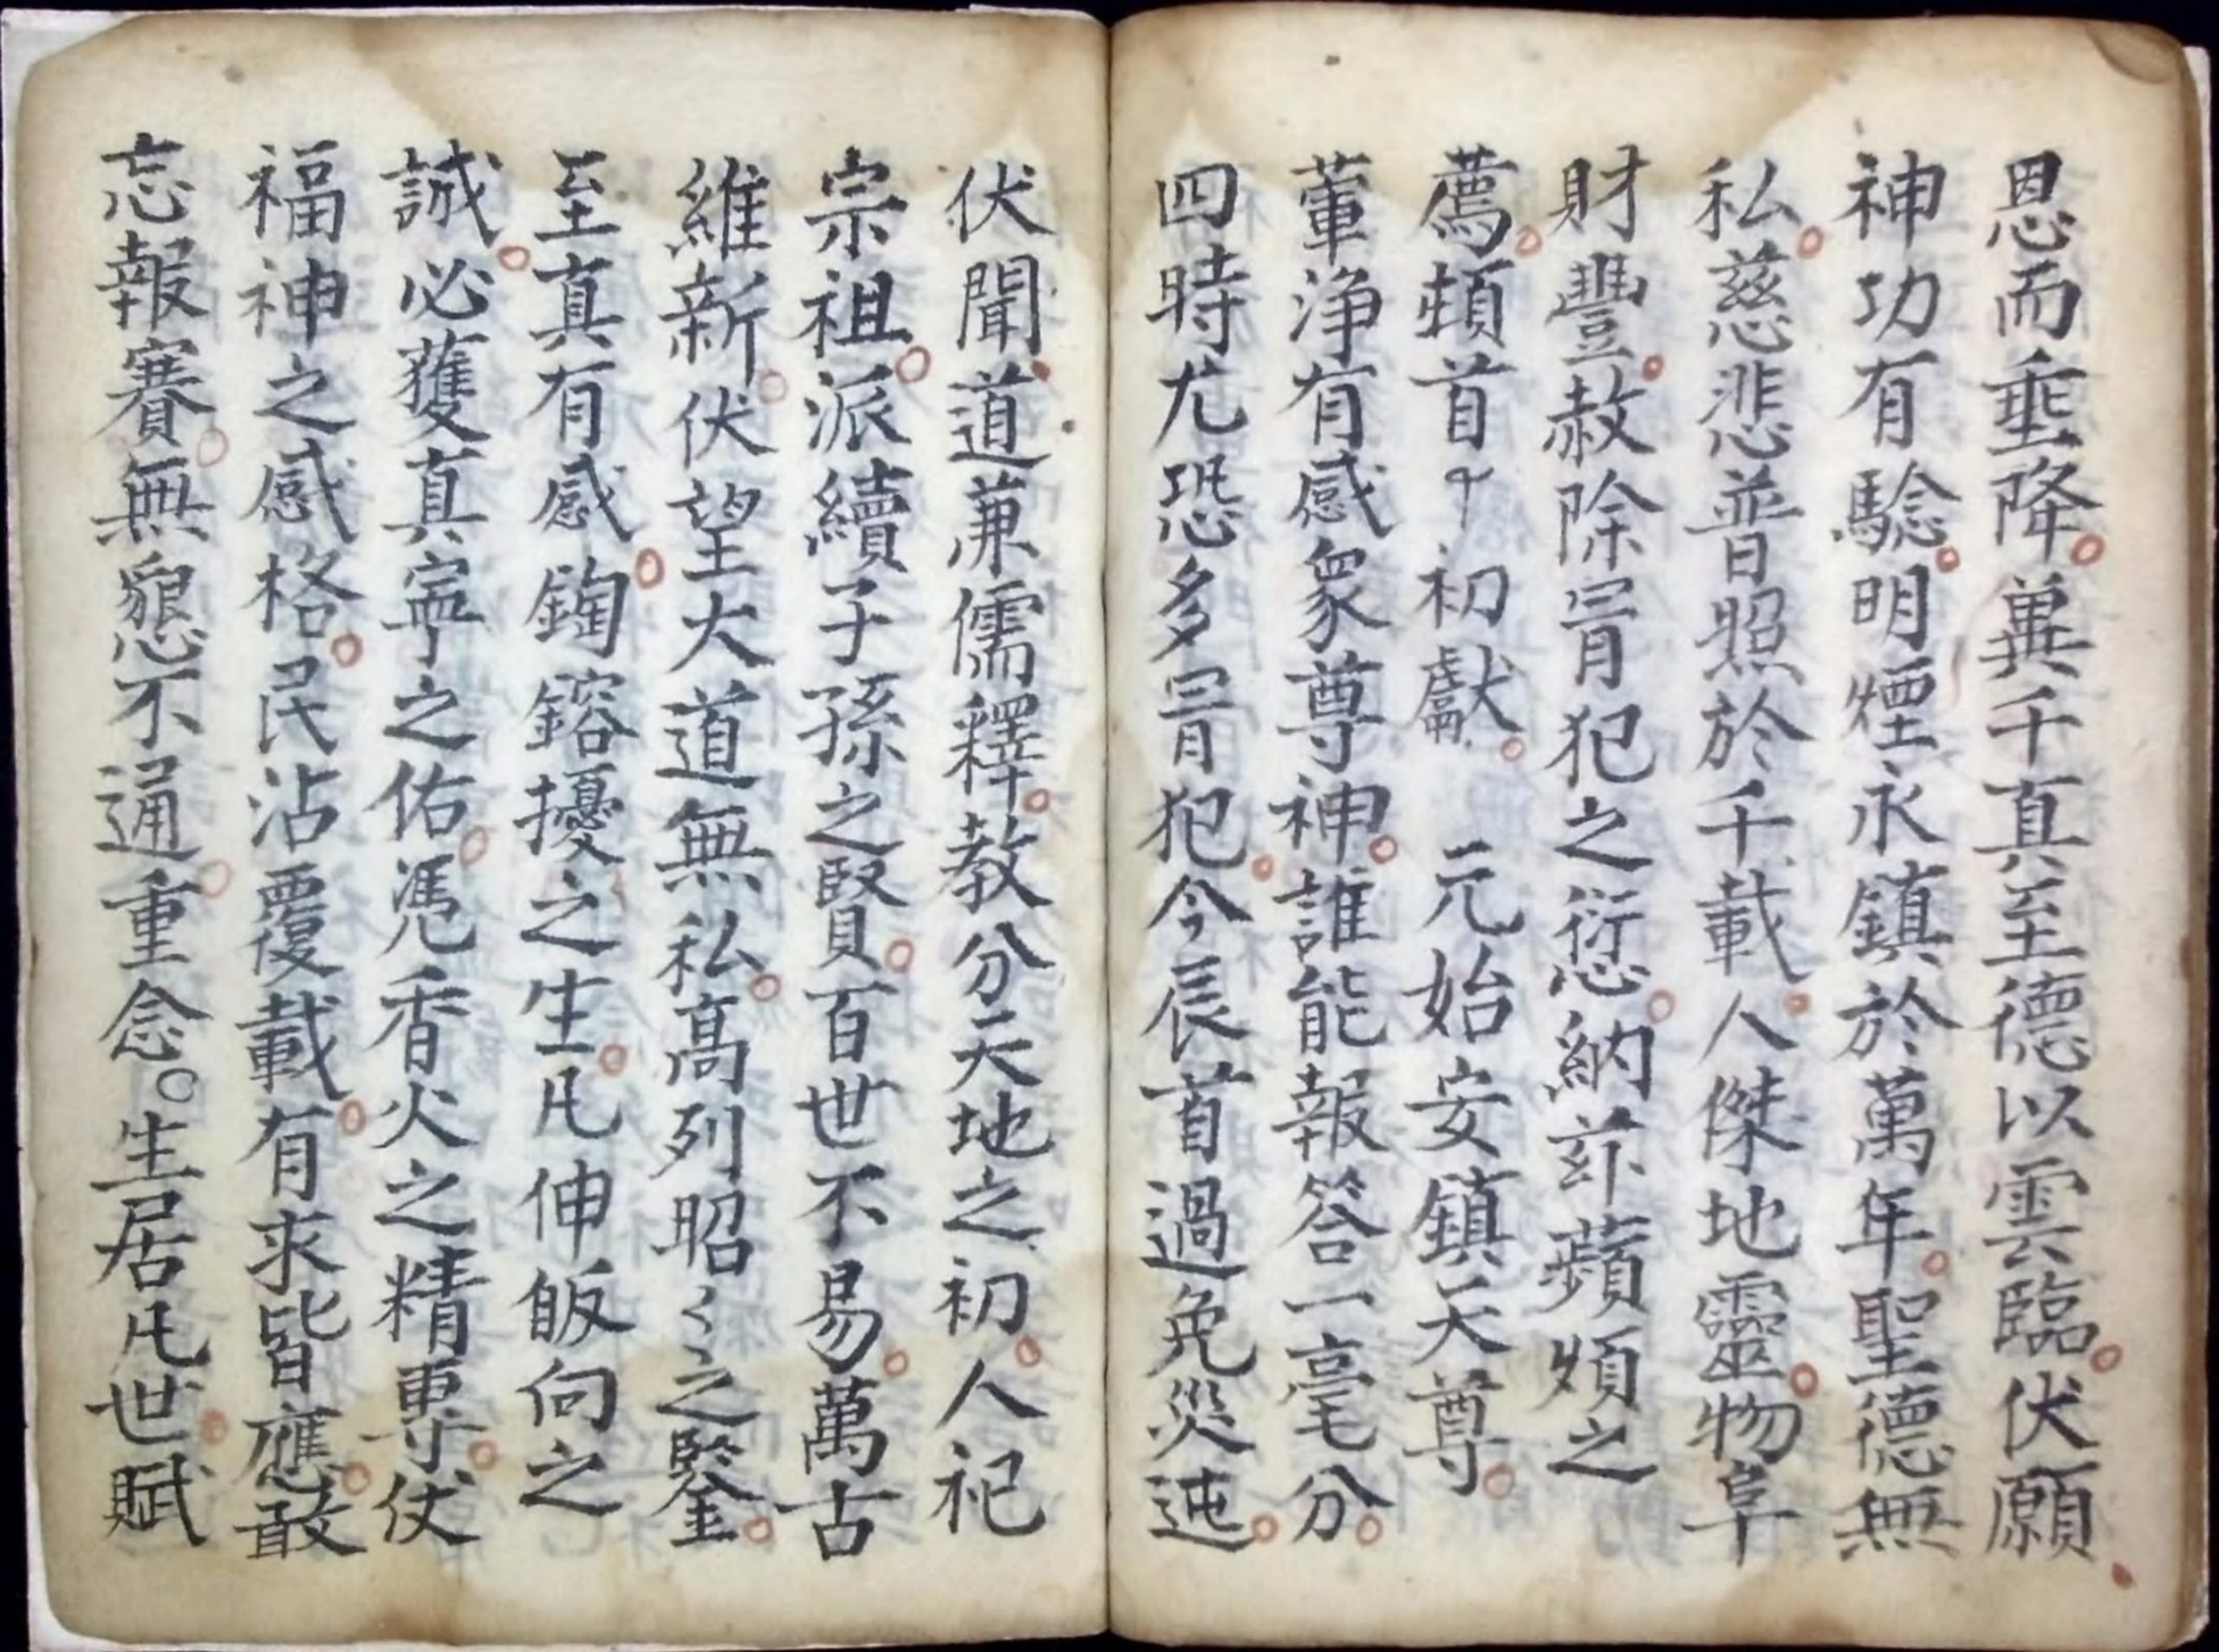 恩而垂降。兾千真至德以雲臨。伏願
神功有騐。明煙永鎮於萬年。聖德無
私。慈悲普照於千載。人傑地靈。物阜
財豐。赦除冐犯之愆。納茲蘋頻之
薦。頓首々初獻。 元始安鎮天尊。
葷淨有感衆尊神。誰能報答一毫分。
四時尤恐多冐犯。今辰首過免災迍。
伏聞。道蒹儒釋。教分天地之初。人祀
宗祖。派續子孫之賢。百世不易。萬古
維新。伏望大道無私。髙列昭〻之鑒。
至真有感。鋾鎔擾之生。凡伸皈向之
誠。必獲真寧之佑。憑香火之精專。仗
福神之感格。民沾覆載。有求皆應。敢
忘報賽。無懇不通。重念。生居凡世。賦